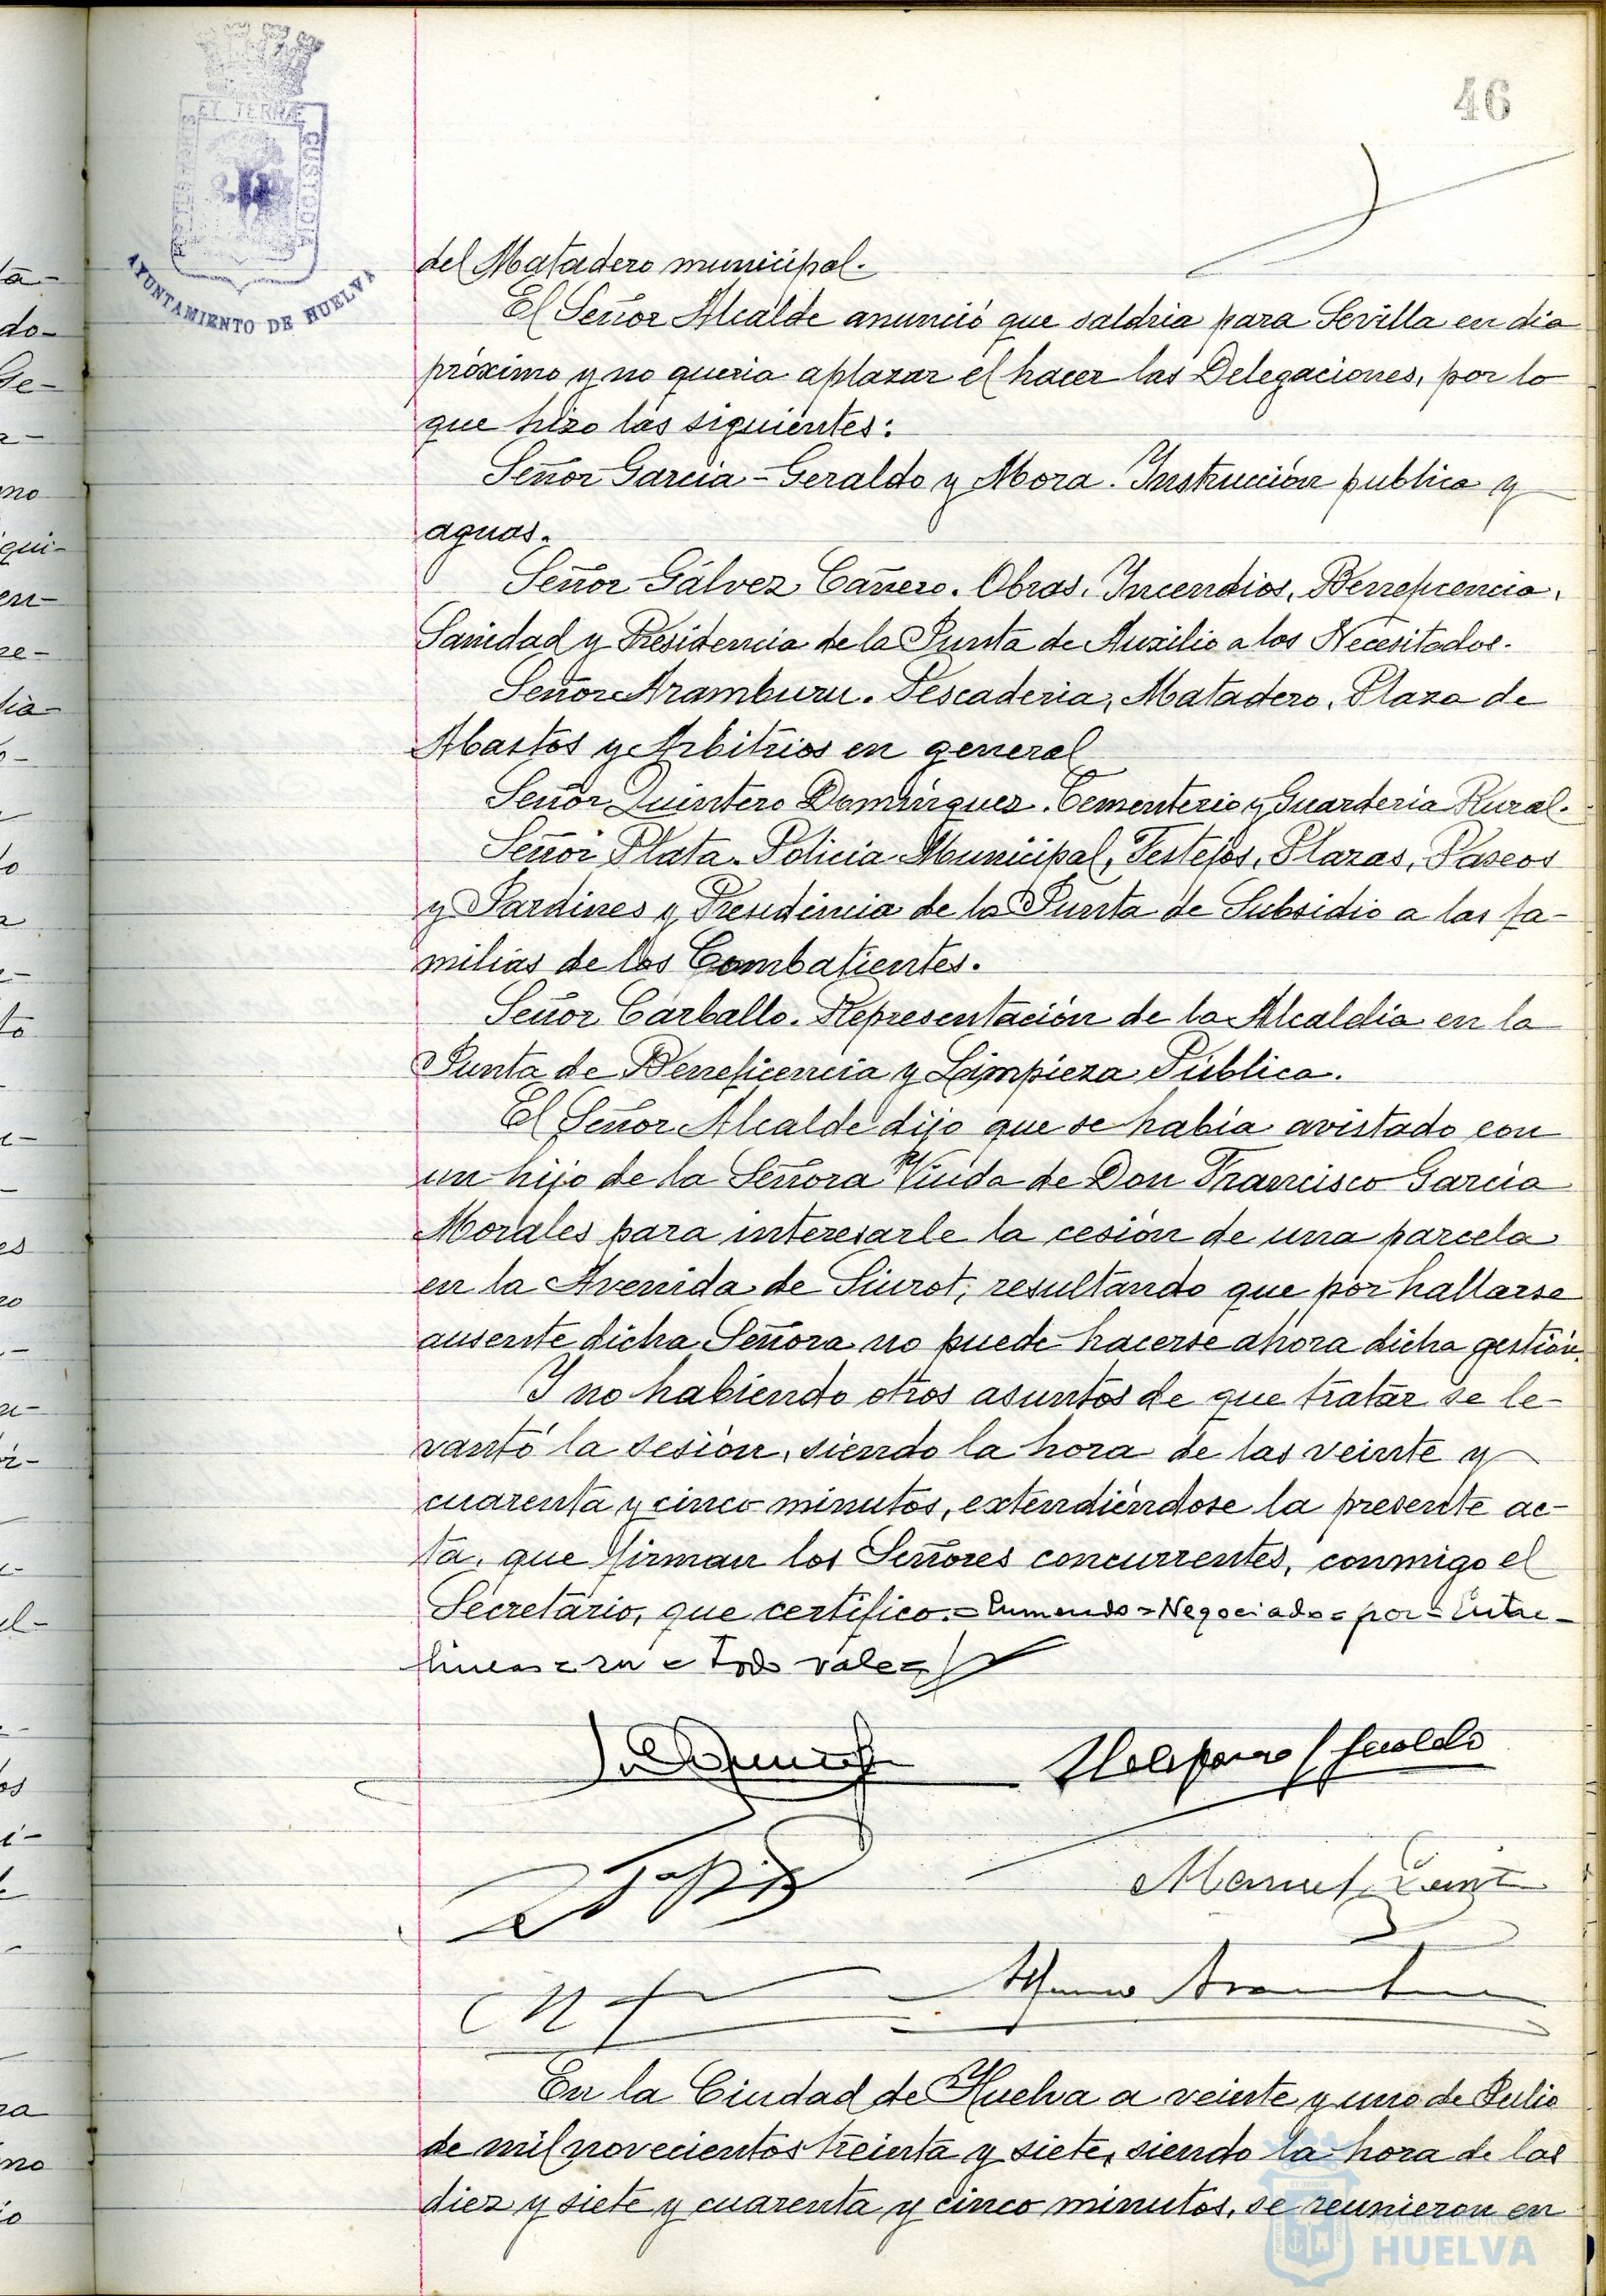 46
PORTUS MARIS
ET TERRÆ
CUSTODIA
AYUNTAMIENTO DE HUELVA
del Matadero municipal.
El Señor Alcalde anunció que saldria para Sevilla en dia
próximo y no queria aplazar el hacer las Delegaciones, por lo
que hizo las siguientes:
Señor Garcia-Geraldo y Mora. Instrucción publica y
aguas.
Señor Gálvez Cañero. Obras. Incendios, Beneficencia,
Sanidad y Presidencia de la Junta de Auxilio a los Necesitados.
Señor Aramburu. Pescaderia, Matadero, Plaza de
Abastos y Arbitrios en general
Señor Quintero Dominguez. Cementerio y Guarderia Rural.
Señor Plata. Policia Municipal, Festejos, Plazas, Paseos
y Jardines y Presidencia de la Junta de Subsidio a las fa-
milias de los Combatientes.
Señor Carballo. Representación de la Alcaldia en la
Junta de Beneficencia y Limpieza Pública.
El Señor Alcalde dijo que se habia avistado con
un hijo de la Señora Viuda de Don Francisco Garcia
Morales para interesarle la cesión de una parcela
en la Avenida de Siurot, resultando que por hallarse
ausente dicha Señora no puede hacerse ahora dicha gestión.
Y no habiendo otros asuntos de que tratar se le-
vantó la sesión, siendo la hora de las veinte y
cuarenta y cinco minutos, extendiéndose la presente ac-
ta, que firman los Señores concurrentes, conmigo el
Secretario, que certifico.= Enmendo = Negociado = por = Entre-
lineas = = Todo vale =
Manuel
En la Ciudad de Huelva a veinte y uno de Julio
de mil novecientos treinta y siete, siendo la hora de las
diez y siete y cuarenta y cinco minutos, se reunieron en
Ayuntamiento de
HUELVA